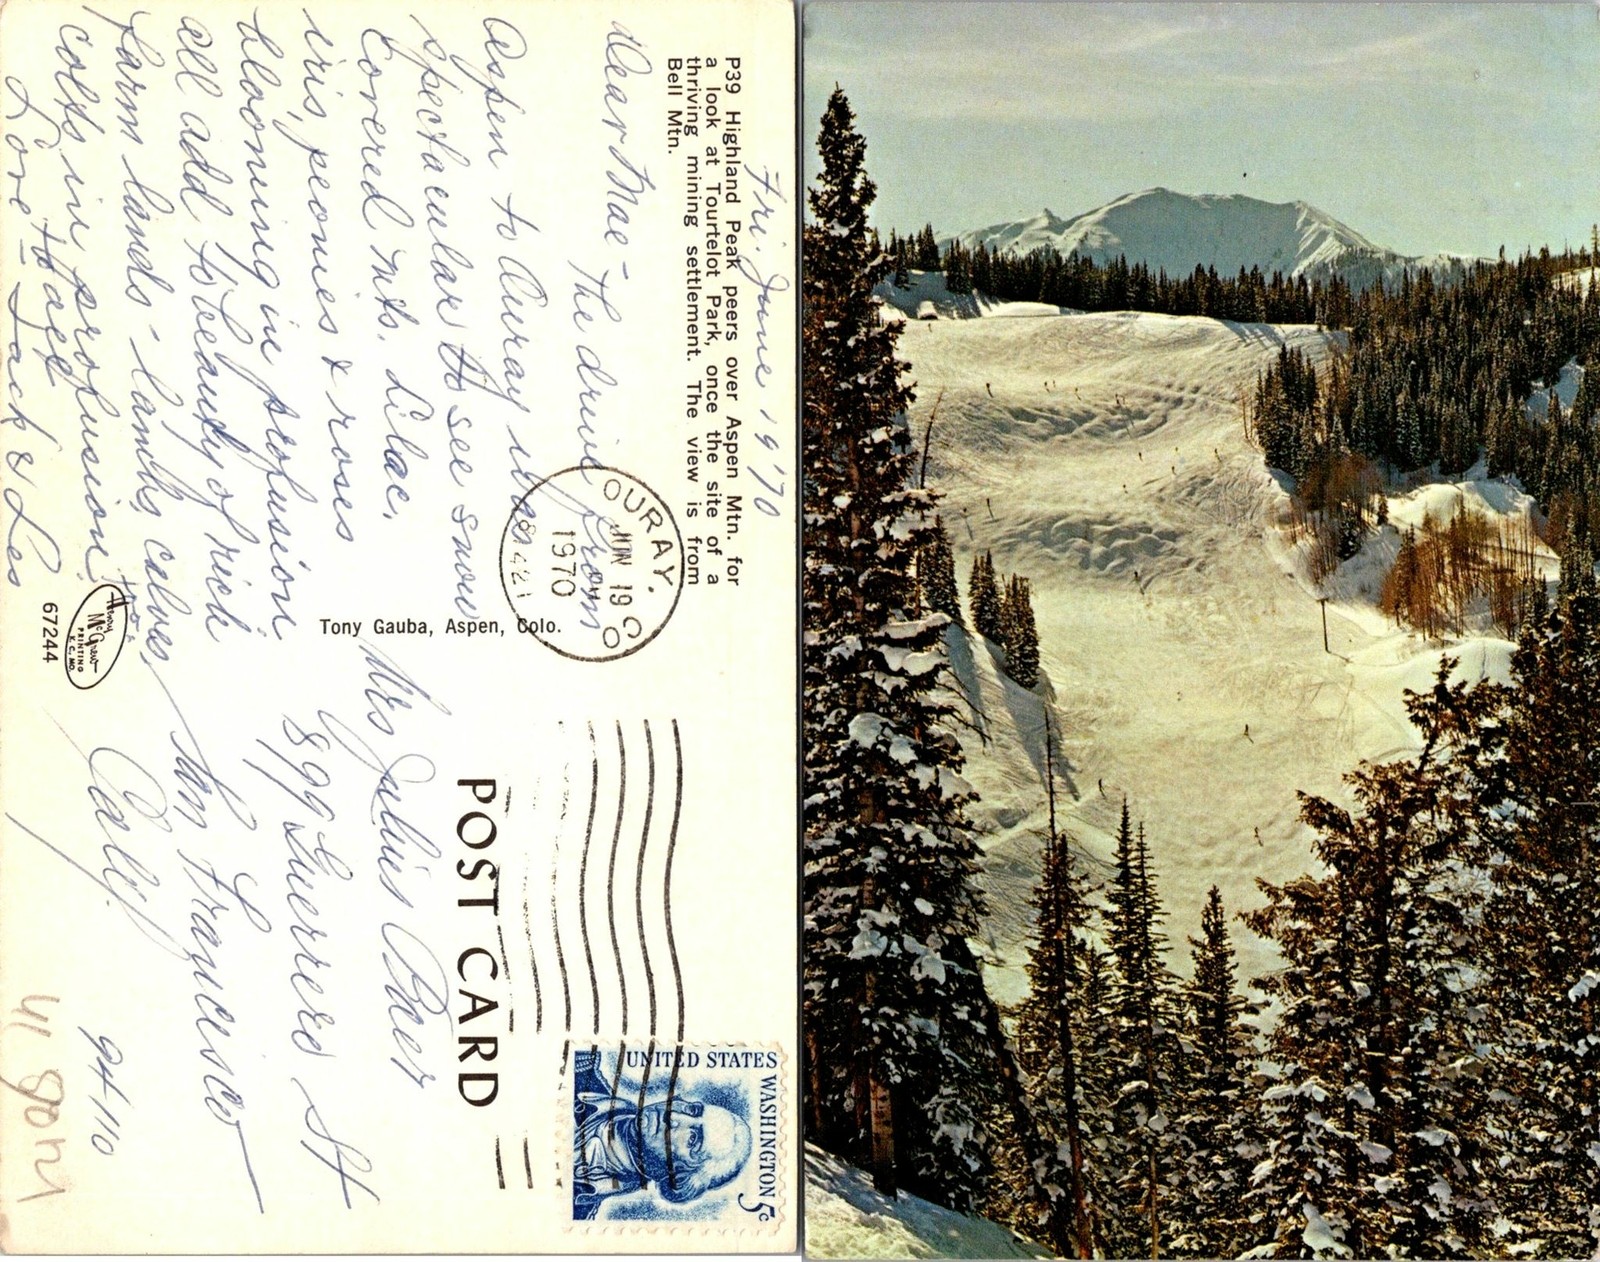 P39 Highland Peak peers over Aspen Mtn. for
a look at Tourtelot Park, once the site of a
thriving mining settlement. The view is from
Bell Mtn.
Fri. June 19 '70
Dear Mae - The drive from
Aspen to Ouray was
spectacular to see snow
Covered Mts. Lilac,
iris, peonies & roses
blooming in profusion
all add to beauty of rich
farm lands - lambs, calves,
colts in profusion too.
to all
Love - Jack & Les
OURAY.
JUN 19
PM
1970
81427
CO
Tony Gauba, Aspen, Colo.
Henry
McGrew
PRINTING
K. C., MO.
67244
POST CARD
UNITED STATES
WASHINGTON 5c
Mrs Julius Baer
899 Guerrero St
San Francisco
Calif.
94110